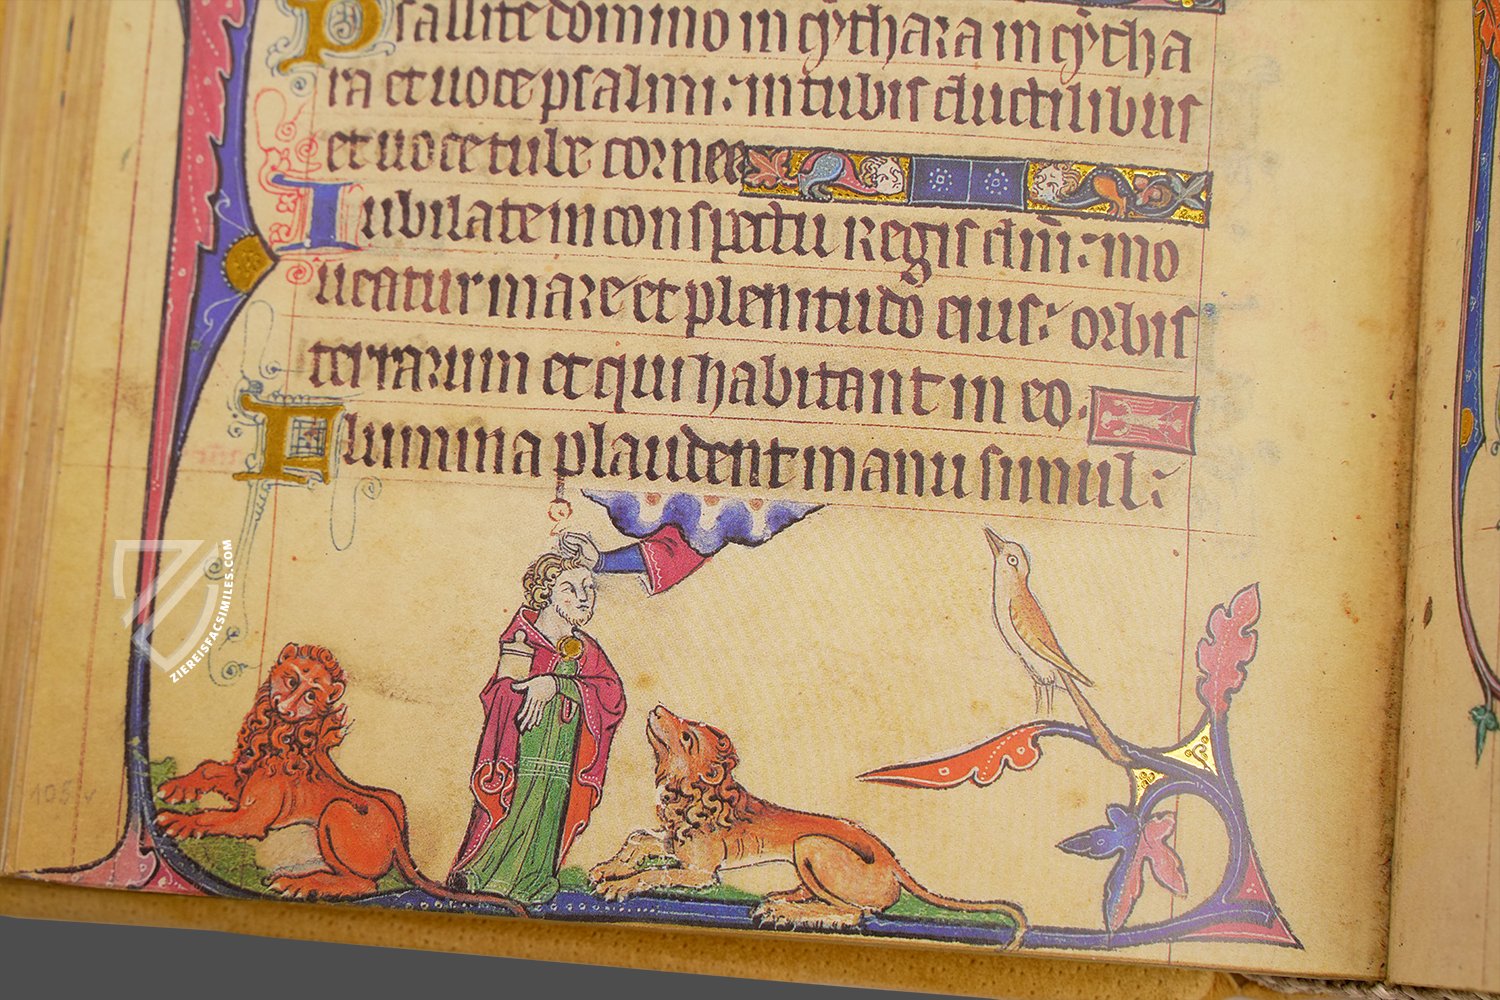 Psallite domino in cythara in cytha
ra et uoce psalmi: in tubis ductilibus
et uoce tube cornee
Iubilate in conspectu regis dñi: mo
ueatur mare et plenitudo eius: orbis
terrarum et qui habitant in eo.
Flumina plaudent manu simul:
105 v
ZIEREISFACSIMILES.COM